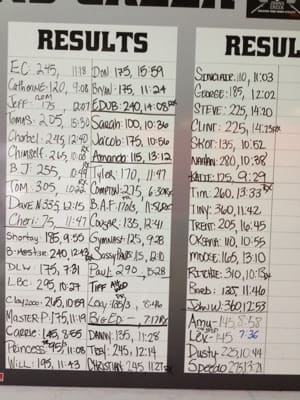 RESULTS
E.C. 245, 11:18
Catherine: 120, 9:08
Jeff 175,
Tomas 205, 15:30
Charbel 245, 12:40
Chimself 265,
B.J. 255, 10:49
Tom 305, 10:23
Dave N 335, 12:15
Cheri: 75, 11:47
Shortay 185, 9:55
B-
DLW 175, 7:31
LBC 295, 10:27
Clay 265, 10:59
Master P: 175, 11:19
Carrie 145, 8:55
Princess 95, 11:08
Will 195, 11:43
Don 175, 15:59
Bryan 175, 11:24
EDUB: 240, 14:08
Sarah: 100, 10:36
Jacob: 175, 10:56
Amanda 115, 13:12
Tyler 170, 11:47
Compton: 275,
B.A.F
Cougar: 135, 12:41
Gymnast: 125, 9:28
Sassy Pants 15, 12:10
Paul 290, 15:28
Tiff
Lexy
Big ED -
DANNY: 135, 11:28
Troy: 245, 12:14
Christian: 245, 11:27
RESUL
Sinclair: 110, 11:03
George: 185, 12:02
Steve: 225, 14:20
Clint: 225, 14:23
Skot: 135, 10:52
Nathan: 280, 10:38
Katie: 125, 9:29
Tim: 260, 13:33
Tiny: 360, 11:42
Trent: 205, 16:45
Oksana: 110, 10:55
Moose: 165, 13:10
Ritchie: 310, 10:13
Bards: 125, 11:46
John W: 360, 12:53
Amy - 145 8:58
Lex - 145 7:36
Dusty - 225, 10:44
Speedo 275, 13:21